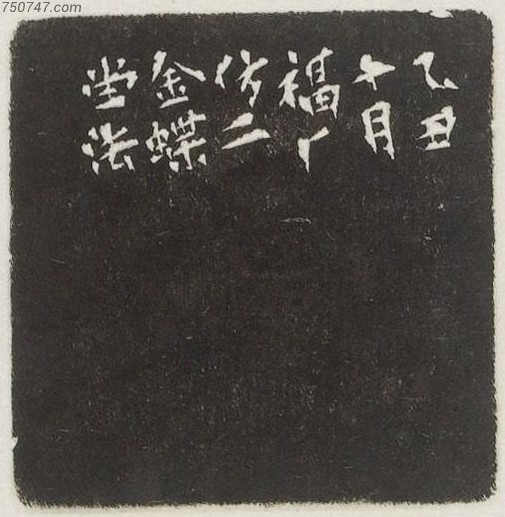 750747.com
乙丑
十月
福厂
仿二
金蝶
坣法